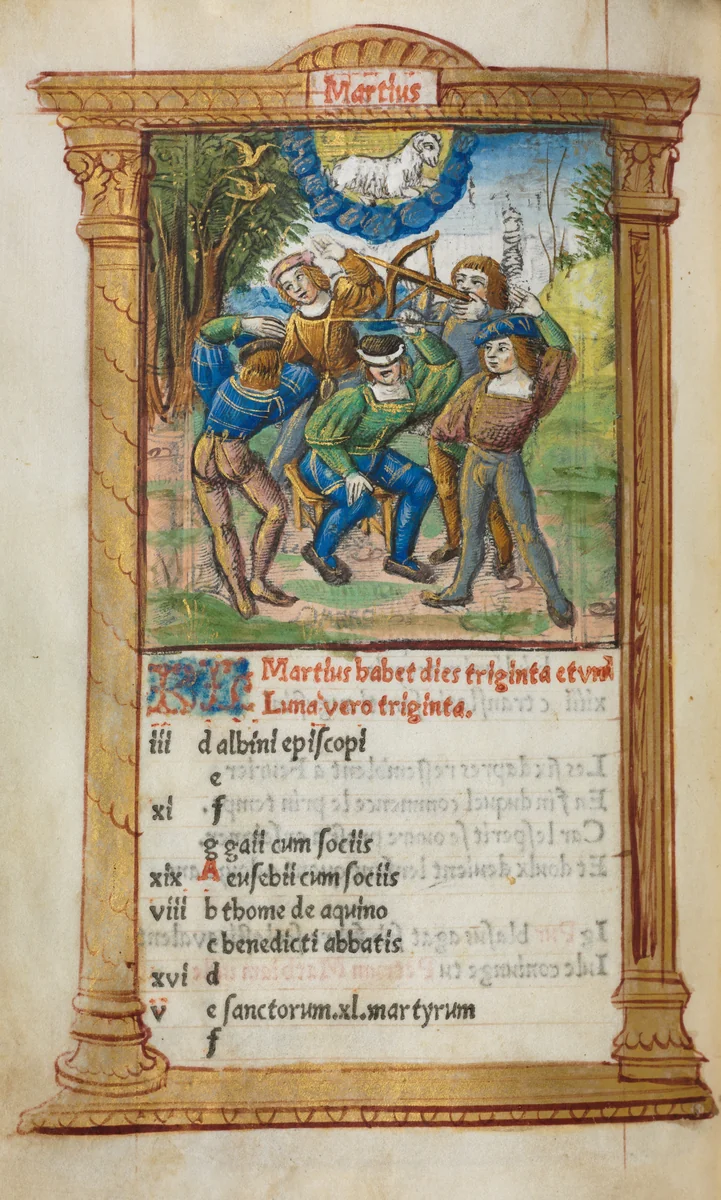 Martius
KL Martius habet dies triginta et vnū
Luna vero triginta.
iii d albini epiſcopi
e
xi f
g gaii cum ſociis
xix A euſebii cum ſociis
viii b thome de aquino
c benedicti abbatis
xvi d
v e ſanctorum .xl. martyrum
f